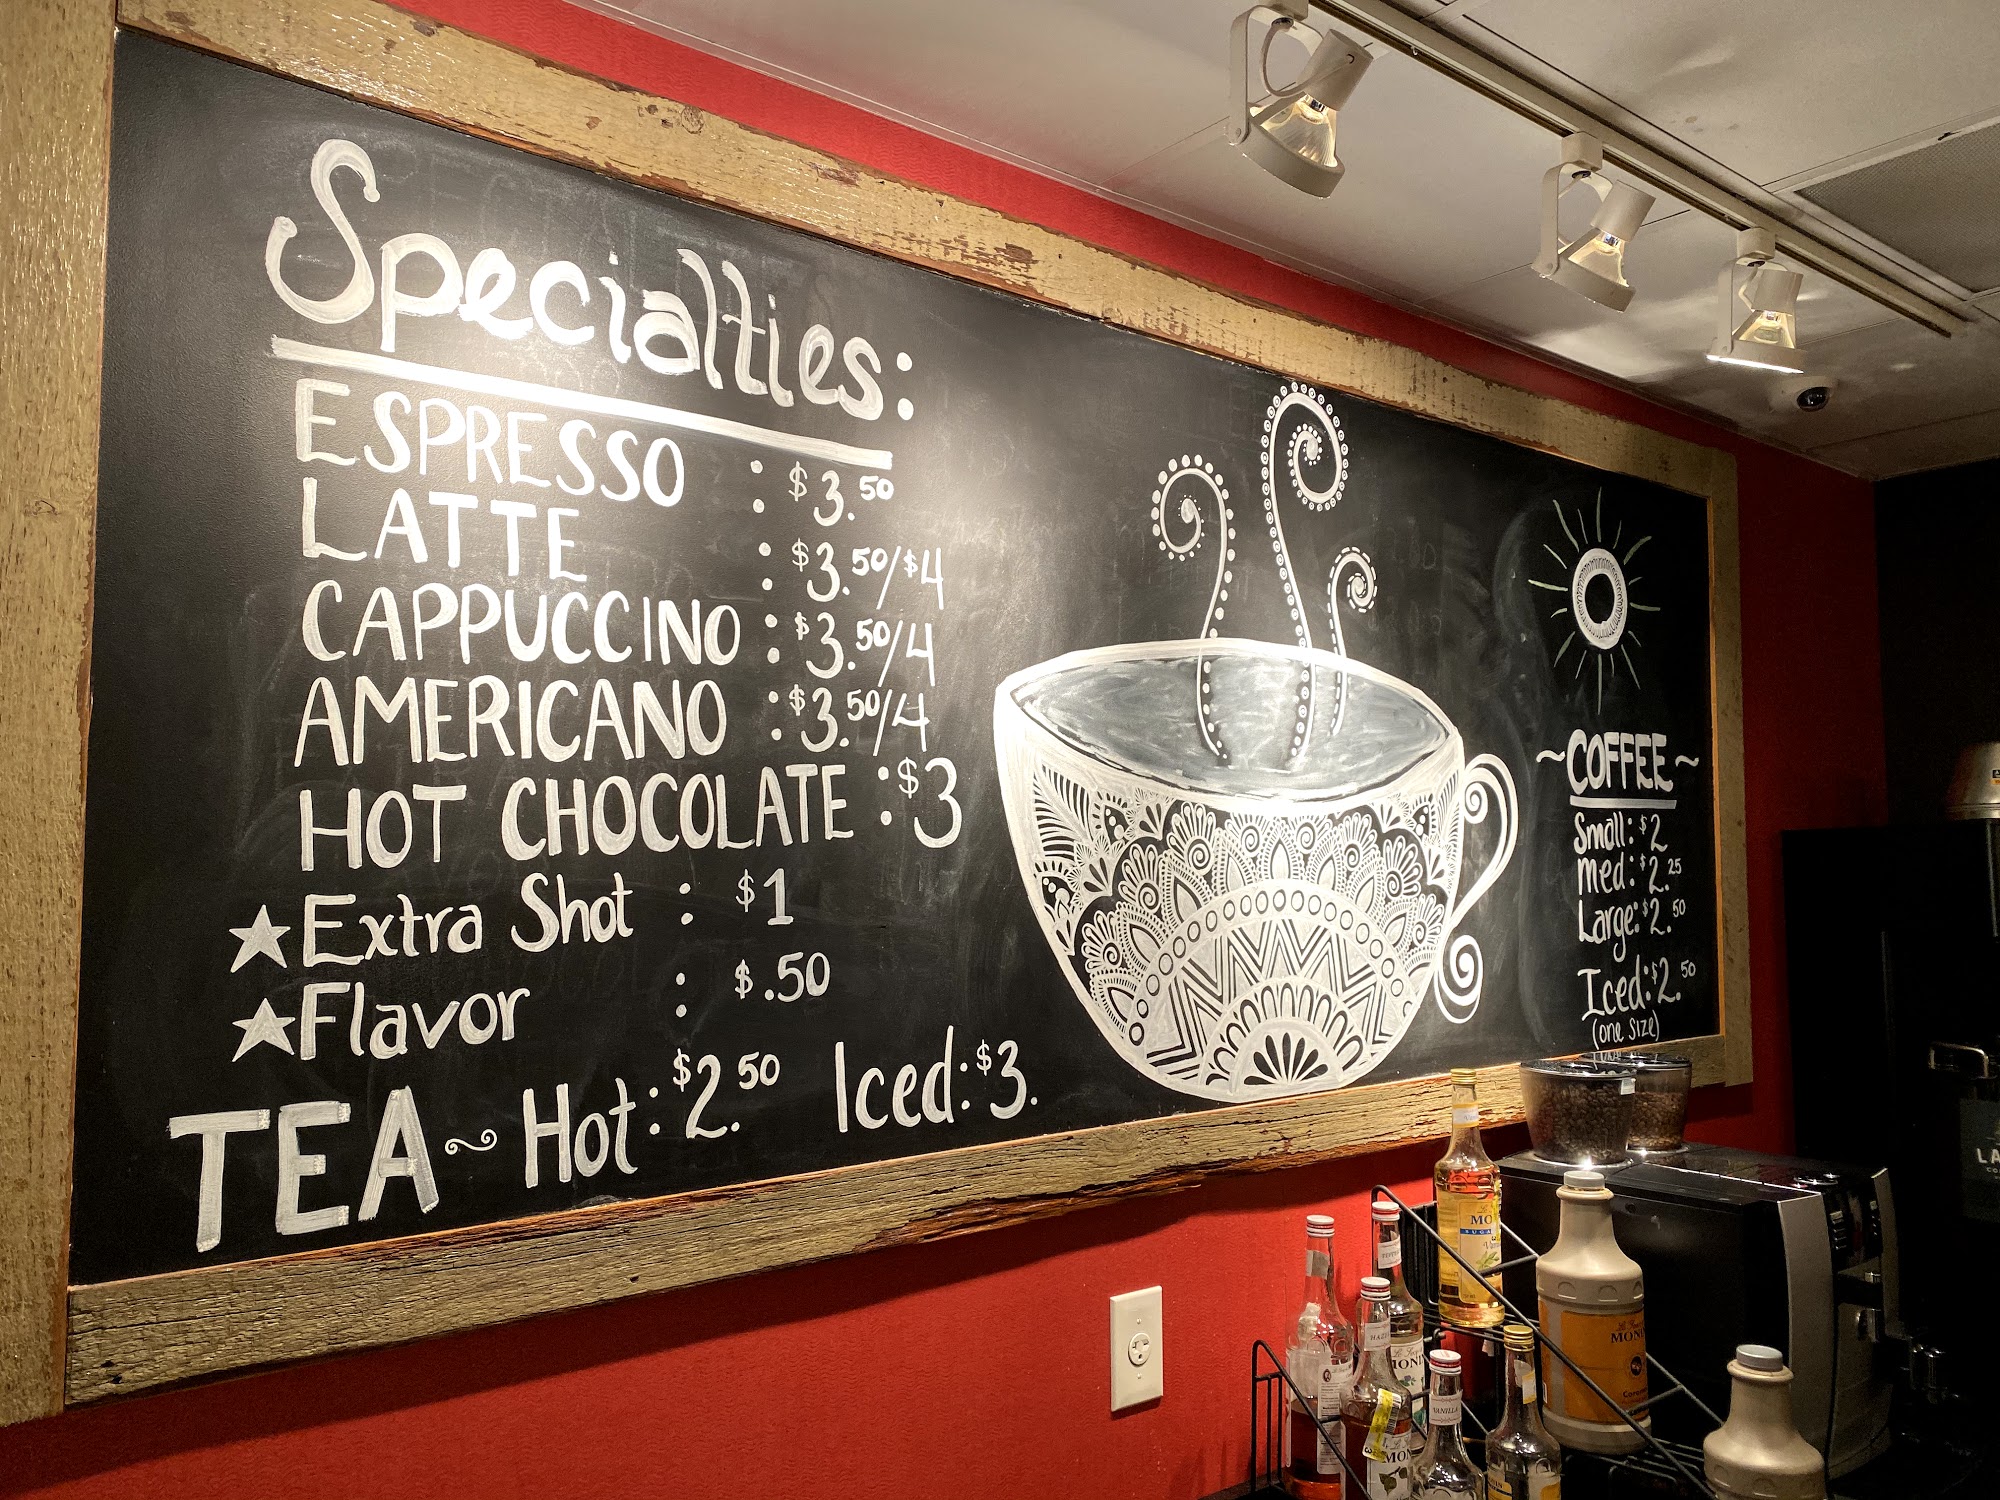 Specialties:
ESPRESSO : $3.50
LATTE : $3.50/$4
CAPPUCCINO : $3.50/4
AMERICANO : $3.50/4
HOT CHOCOLATE : $3
★Extra Shot : $1
★Flavor : $.50
TEA~ Hot: $2.50 Iced: $3.
~COFFEE~
Small: $2
Med: $2.25
Large: $2.50
Iced: $2.50
(one size)
VANILLA